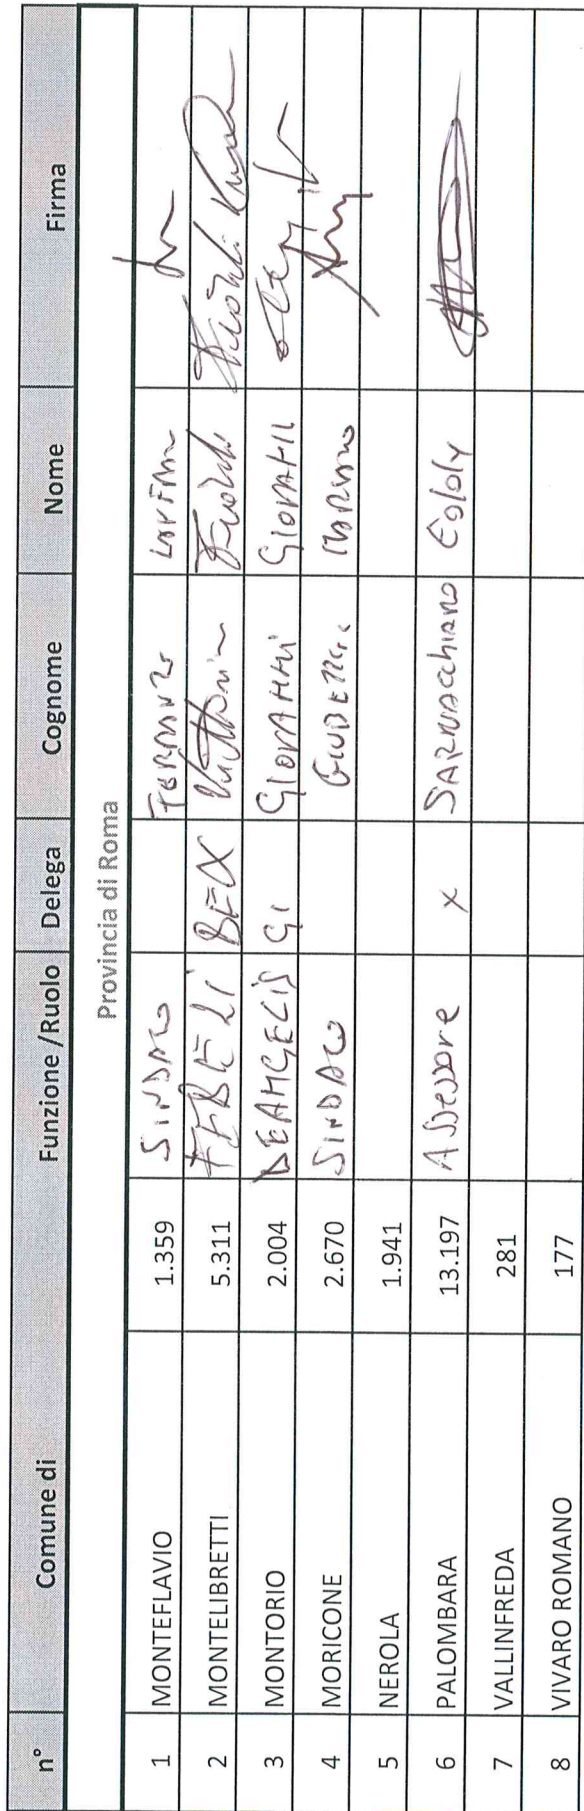 n° Comune di Funzione / Ruolo Delega Cognome Nome Firma
Provincia di Roma
1 MONTEFLAVIO 1.359 SINDACO FERRANTE
2 MONTELIBRETTI 5.311
3 MONTORIO 2.004 DEANGELIS GI GIOVANNI GIOVANNI
4 MORICONE 2.670 SINDACO MARIANO
5 NEROLA 1.941
6 PALOMBARA 13.197 Assessore x SARNACchiaro Eddy
7 VALLINFREDA 281
8 VIVARO ROMANO 177